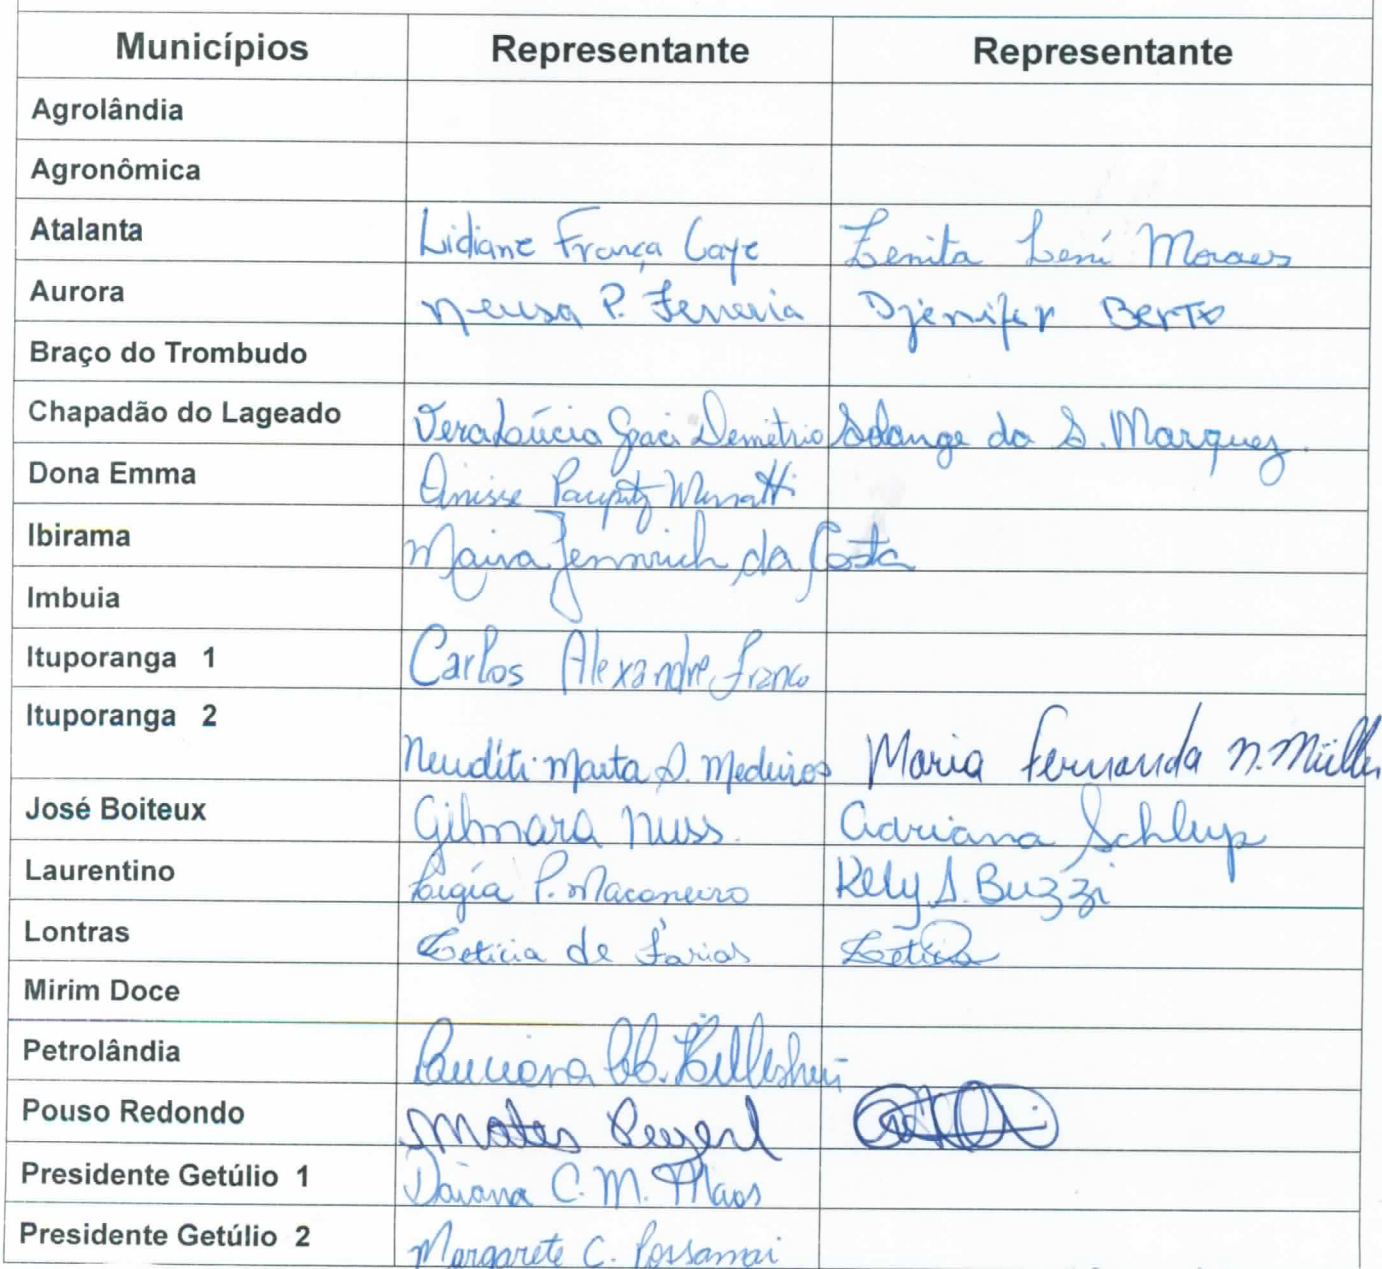 Municípios Representante Representante
Agrolândia
Agronômica
Atalanta Lidiane França Caye Zenita Leni Moraes
Aurora Neusa P. Ferreria Djenifer BERTO
Braço do Trombudo
Chapadão do Lageado Vera Lúcia Graci Demétrio Solange da S. Marquez
Dona Emma
Ibirama Maira Jennrich da Costa
Imbuia
Ituporanga 1 Carlos Alexandre Franco
Ituporanga 2 Marta S. Medeiros Maria Fernanda N. Müller
José Boiteux Gilmara Nuss. Adriana Schlup
Laurentino Ligia P. Macaneiro Kely S. Buzzi
Lontras Leticia de Farias Leticia
Mirim Doce
Petrolândia Luciana
Pouso Redondo
Presidente Getúlio 1 Daiana C. M. Maos
Presidente Getúlio 2 Margarete C. Possamai